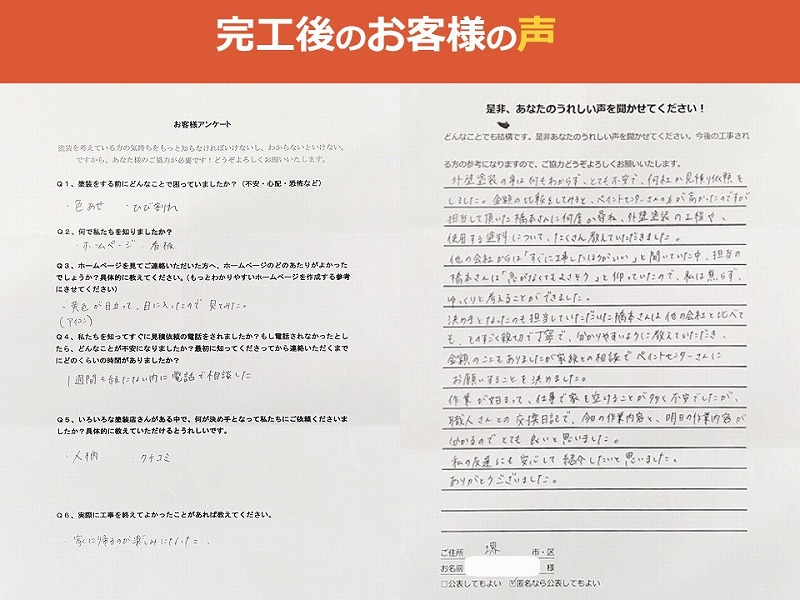 完工後のお客様の声
お客様アンケート
塗装を考えている方の気持ちをもっと知らなければいけないし、わからないといけない。
ですから、あなた様のご協力が必要です！どうぞよろしくお願いいたします。
Q1、塗装をする前にどんなことで困っていましたか？（不安・心配・恐怖など）
・色あせ ・ひび割れ
Q2、何で私たちを知りましたか？
・ホームページ ・看板
Q3、ホームページを見てご連絡いただいた方へ、ホームページのどのあたりがよかった
でしょうか？具体的に教えてください。（もっとわかりやすいホームページを作成する参考
にさせてください）
・黄色が目立って、目に入ったので見てみた。
(アイコン)
Q4、私たちを知ってすぐに見積依頼の電話をされましたか？もし電話されなかったとし
たら、どんなことが不安になりましたか？最初に知ってくださってから連絡いただくまで
にどのくらいの時間がありましたか？
1週間も経たない内に電話で相談した
Q5、いろいろな塗装店さんがある中で、何が決め手となって私たちにご依頼くださいま
したか？具体的に教えていただけるとうれしいです。
・人柄 ・クチコミ
Q6、実際に工事を終えてよかったことがあれば教えてください。
・家に帰るのが楽しみになった。
是非、あなたのうれしい声を聞かせてください！
どんなことでも結構です。是非あなたのうれしい声を聞かせてください。今後の工事され
る方の参考になりますので、ご協力どうぞよろしくお願いいたします。
外壁塗装の事は何もわからず、とても不安で、何社か見積り依頼を
しました。金額の比較をしてみると、ペイントセンターさんの方が高かったのですが
担当して頂いた橋本さんに何度か尋ね、外壁塗装の工程や、
使用する塗料について、たくさん教えていただきました。
他の会社からは「すぐに工事したほうがいい」と聞いていた中、担当の
橋本さんは「急がなくてもよさそう」と仰っていたので、私は焦らず、
ゆっくりと考えることができました。
決め手となったのも担当していただいた橋本さんは他の会社と比べて
も、ものすごく親切で丁寧で、分かりやすいように教えていただき、
金額のこともありましたが家族との相談でペイントセンターさんに
お願いすることを決めました。
作業が始まって、仕事で家を空けることが多く不安でしたが、
職人さんとの交換日記で、今日の作業内容と、明日の作業内容が
分かるのでとても良いと思いました。
私の友達にも安心して紹介したいと思いました。
ありがとうございました。
ご住所 堺 市・区
お名前 様
□公表してもよい ☑匿名なら公表してもよい